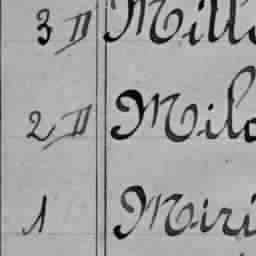 3 II Mill
2 II Mil
1 Miri